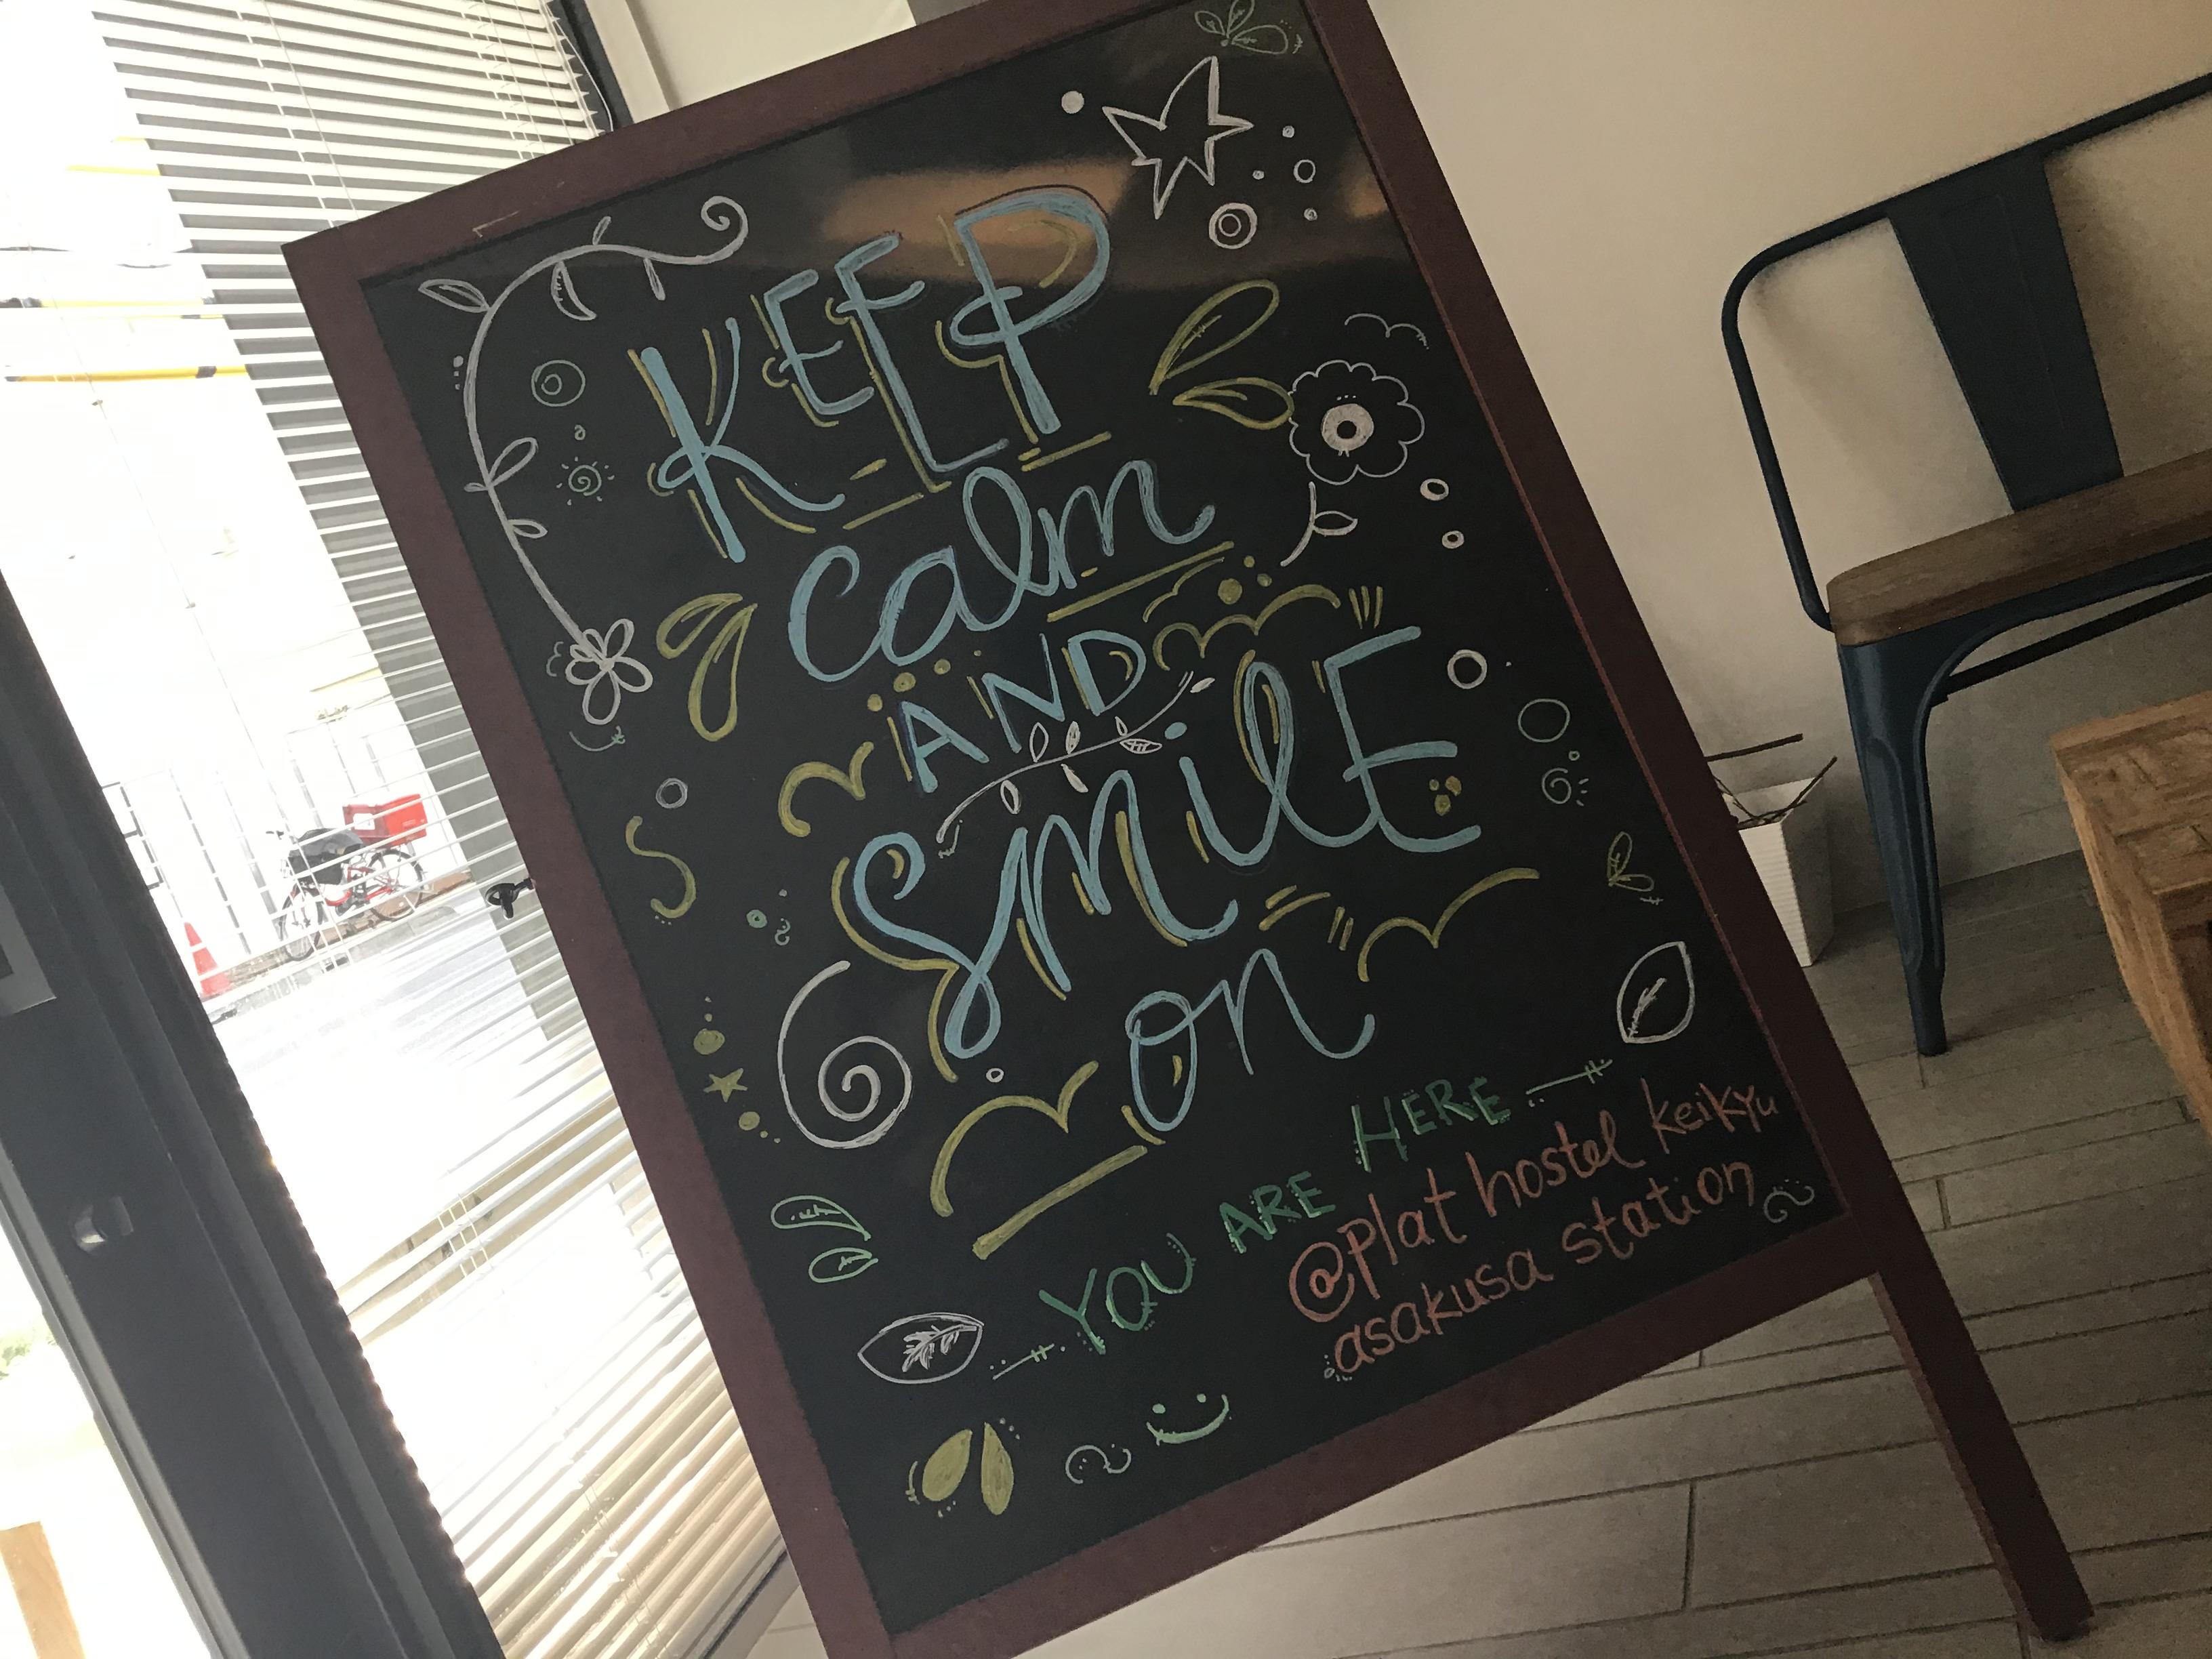 KEEP
calm
AND
SMilE
on
YOU ARE HERE
@plat hostel keikyu
asakusa station